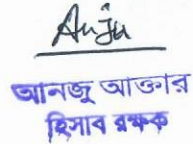 Anju
আনজু আক্তার
হিসাব রক্ষক